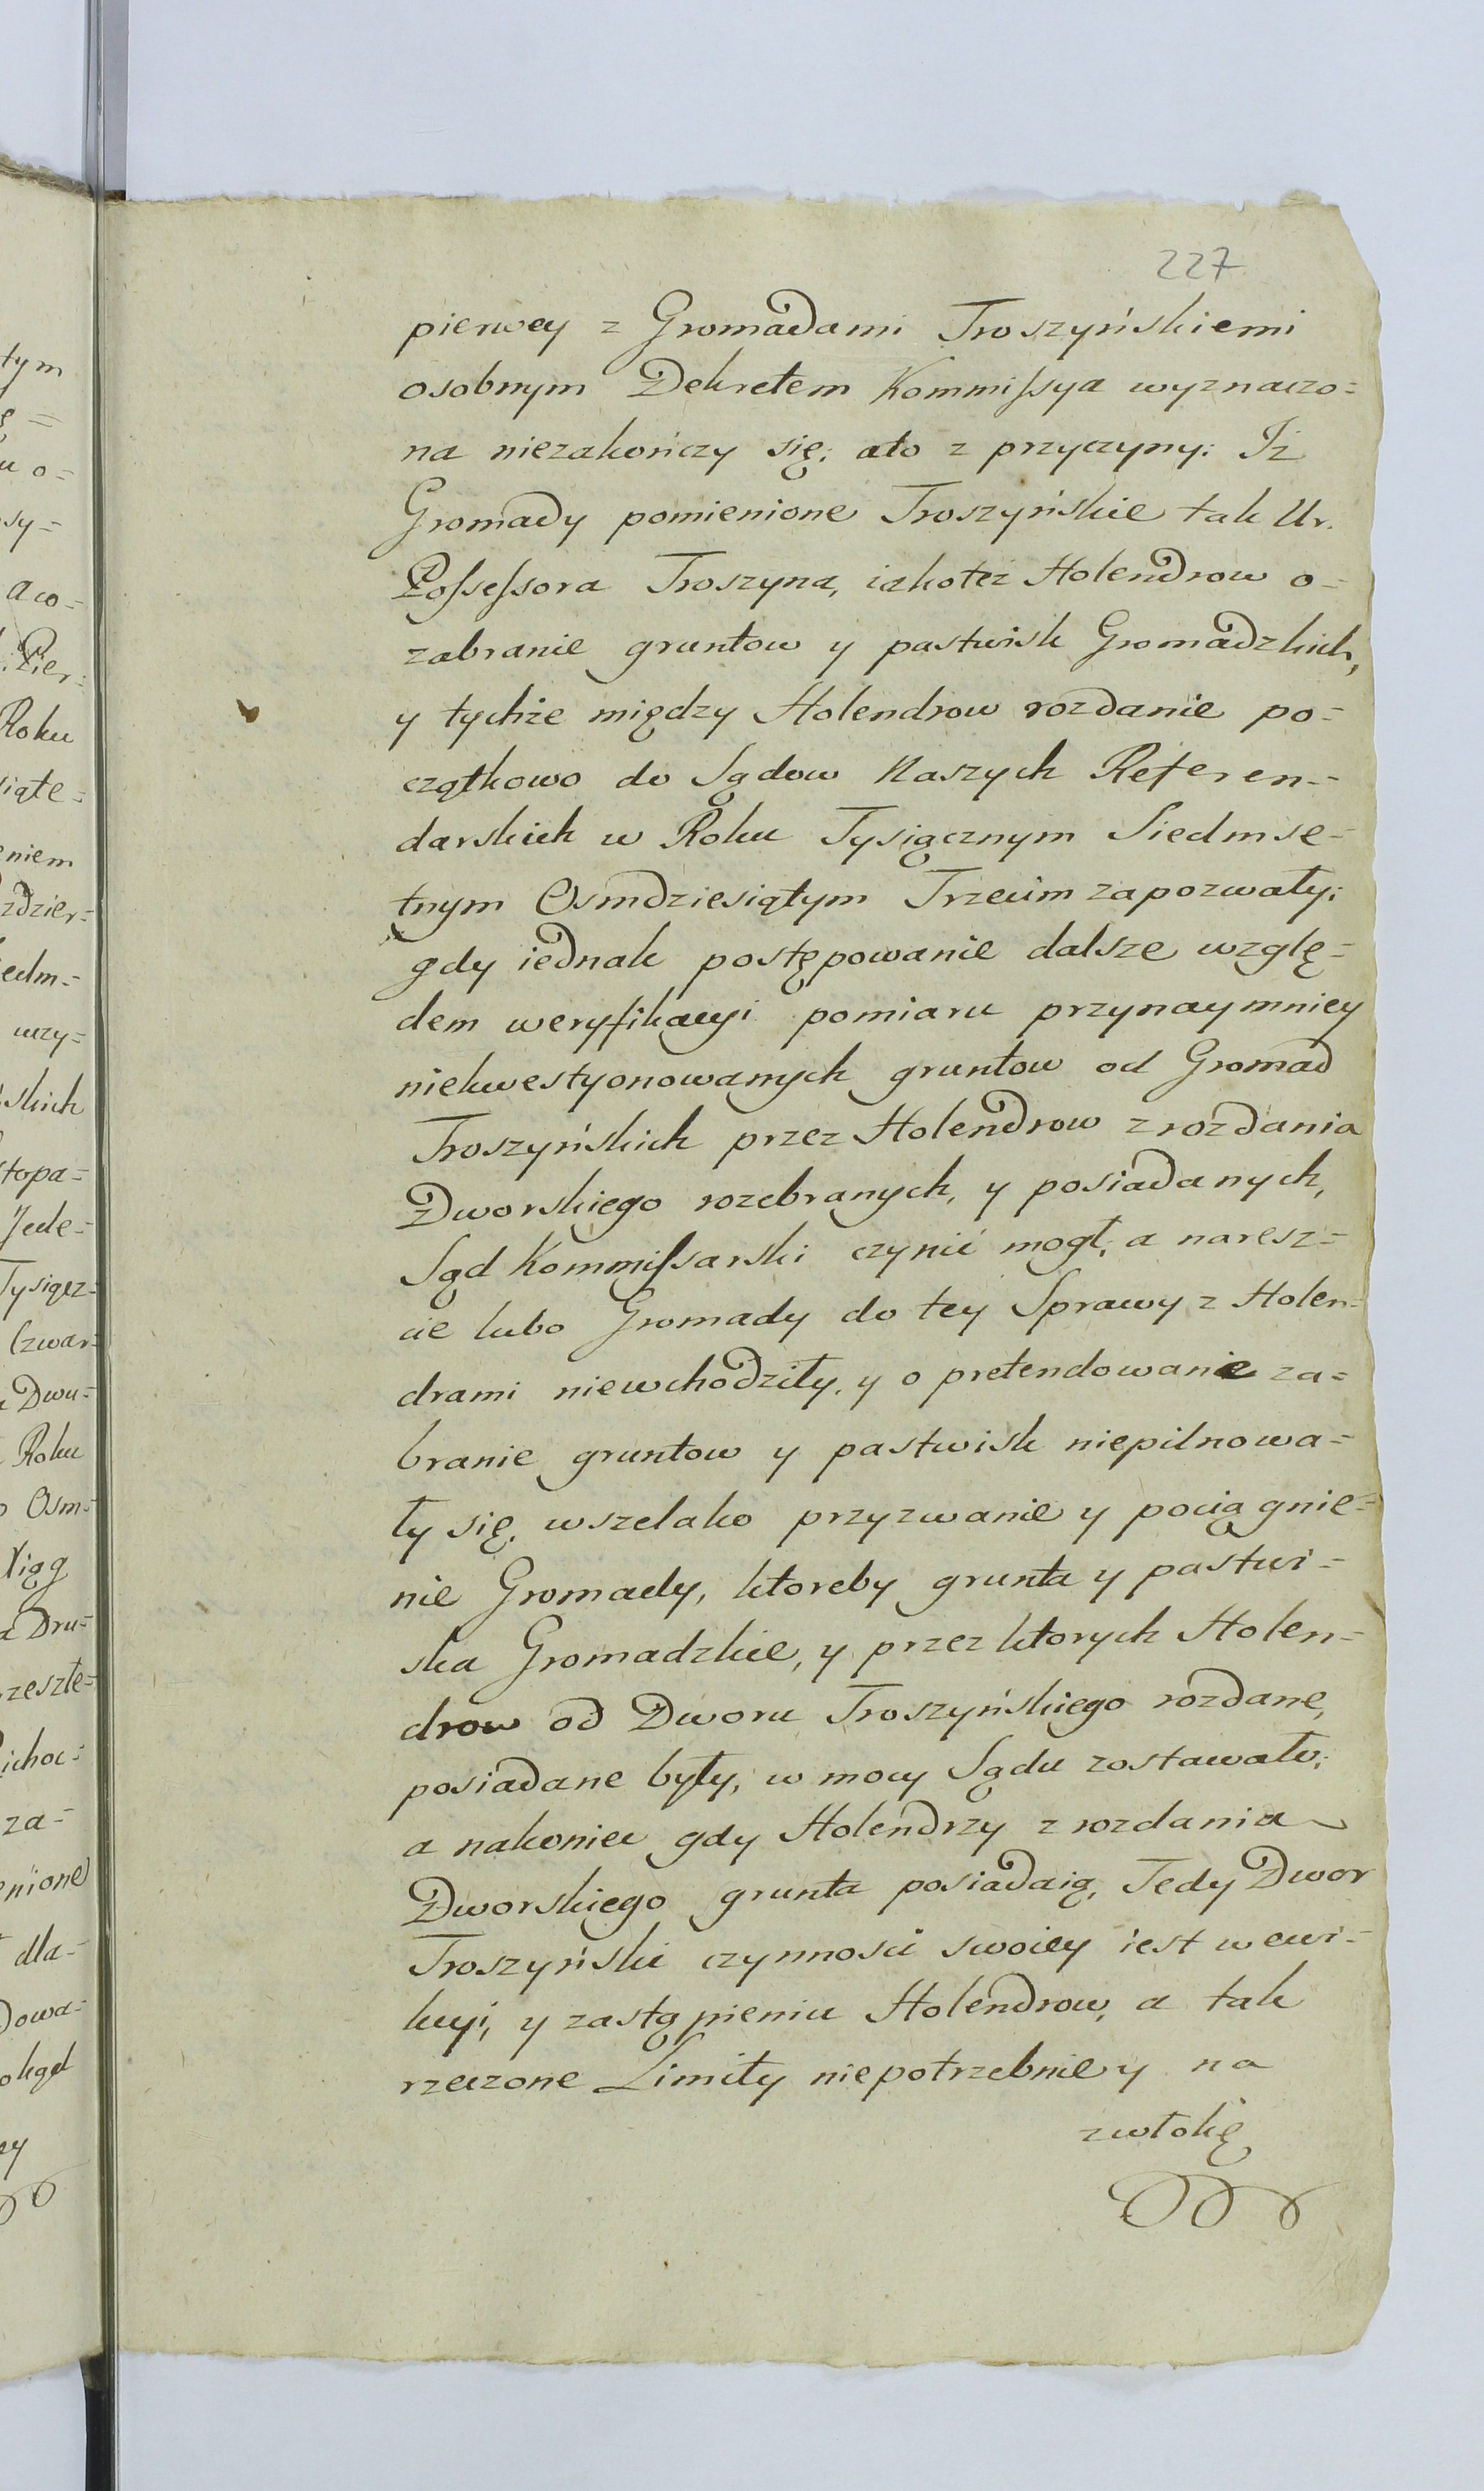 227
pierwey z Gromadami Troszyńskiemi
osobnym Dekretem Kommissya wyznaczo=
na niezakończy się; ato z przyczyny: Iż
Gromady pomienione Troszyńskie tak Ur.
Possessora Troszyna, iakoteż Holendrow o=
zabranie gruntow y pastwisk Gromadzkich,
y tychże między Holendrow rozdanie po=
czątkowo do Sądow Naszych Referen=
darskich w Roku Tysiącznym Siedmse=
tnym Osmdziesiątym Trzecim zapozwały;
gdy iednak postępowanie dalsze wzglę=
dem weryfikacyi pomiaru przynaymniey
niekwestyonowanych gruntow od Gromad
Troszyńskich przez Holendrow z rozdania
Dworskiego rozebranych, y posiadanych,
Sąd Kommissarski czynić mogł; a naresz=
cie lubo Gromady do tey Sprawy z Holen=
drami niewchodziły, y o pretendowanie za=
branie gruntow y pastwisk niepilnowa=
ły się, wszelako przyzwanie y pociągnie=
nie Gromady, ktoreby grunta y pastwi=
ska Gromadzkie, y przez ktorych Holen=
drow od Dworu Troszyńskiego rozdane,
posiadane były, w mocy Sądu zostawało;
a nakoniec gdy Holendrzy z rozdania
Dworskiego grunta posiadaią, Tedy Dwor
Troszyński czynności swoiey iest w ewi=
kcyi, y zastąpieniu Holendrow, a tak
rzeczone Limity niepotrzebnie y na
zwłokę
tym
u o=
sy=
aco=
Pier=
Roku
siąte=
eniem
ździer=
iedm=
uczy=
skich
topa=
Jede=
Tysiącz=
Czwar=
Dwu=
Roku
Osm=
Xiąg
a Dru=
zeszłe=
ichoc=
za=
nione
dla=
dowa=
okąd